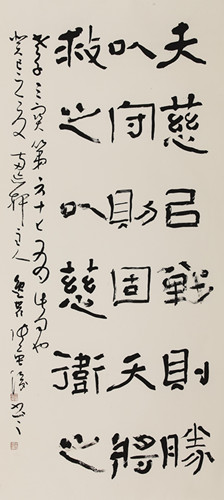 夫慈㠯戰則勝
以守則固天將
救之以慈衛之
老子三寶第六十七
癸巳之夏軒主人